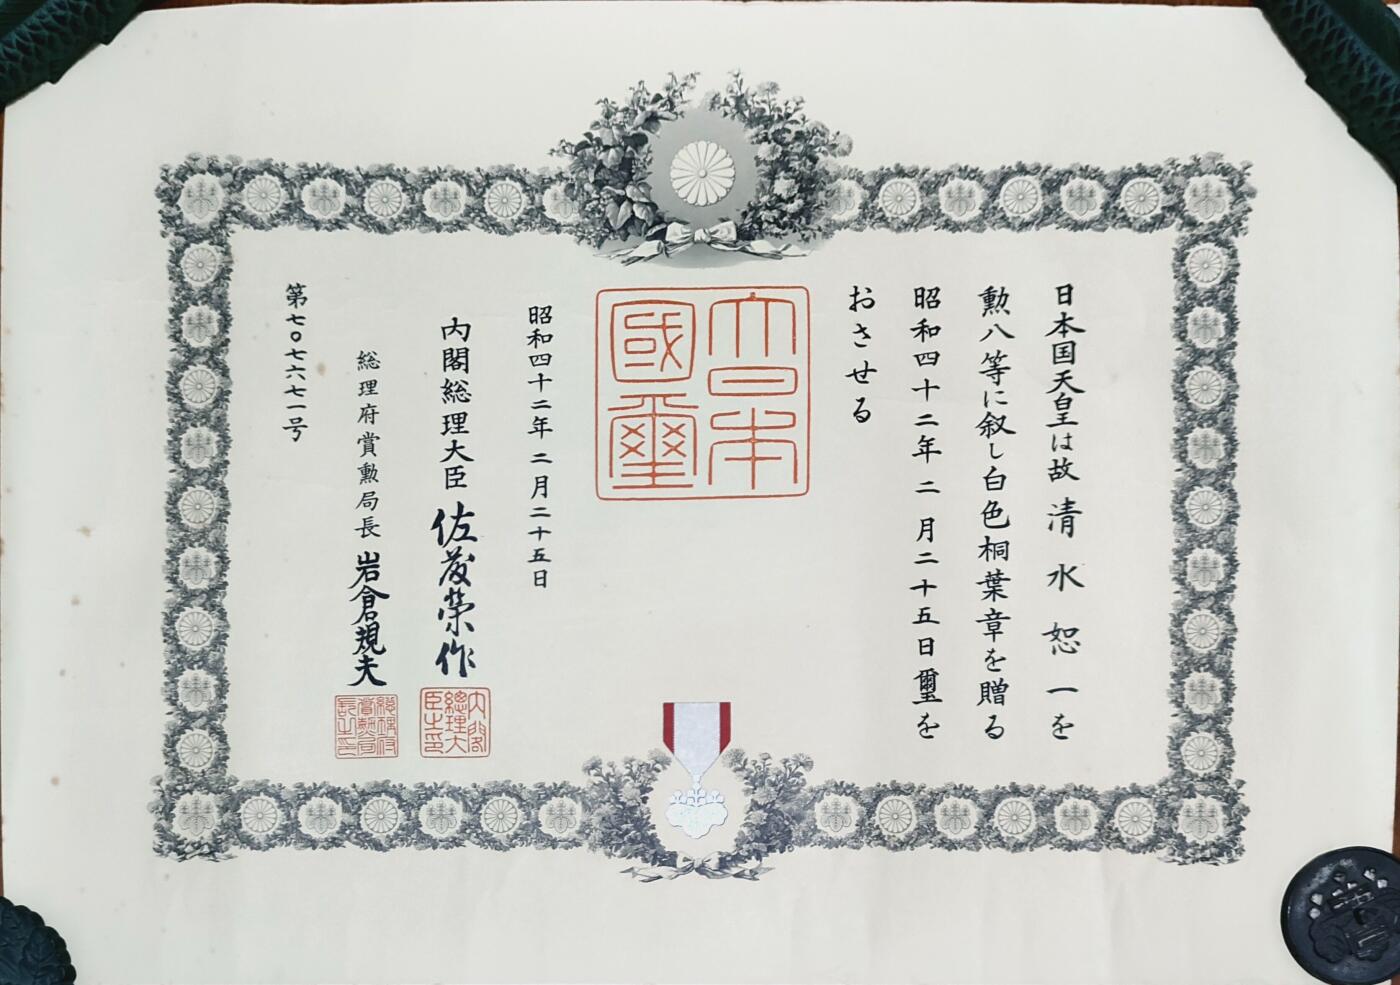 日本国天皇は故清水恕一を
勲八等に叙し白色桐葉章を贈る
昭和四十二年二月二十五日璽を
おさせる
大日本國璽
昭和四十二年二月二十五日
内閣総理大臣 佐藤榮作
内閣總理大臣之印
総理府賞勲局長 岩倉規夫
總理府賞勲局長之印
第七〇七六七一号